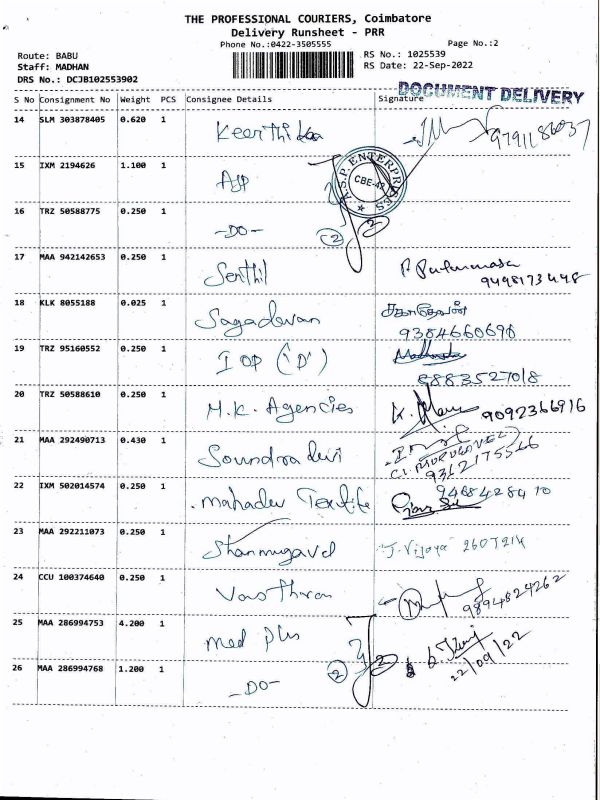 THE PROFESSIONAL COURIERS, Coimbatore
Delivery Runsheet - PRR
Phone No.:0422-3505555
Page No.:2
Route: BABU
RS No.: 1025539
Staff: MADHAN
RS Date: 22-Sep-2022
DRS No.: DCJB102553902
DOCUMENT DELIVERY
S No Consignment No Weight PCS Consignee Details Signature
14 SLM 303878405 0.620 1
9791186037
15 IXM 2194626 1.100 1 ASP
A.S.P ENTERPRISES
CBE-42
16 TRZ 50588775 0.250 1 -DO- 2 2
17 MAA 942142653 0.250 1 Senthil
9498173448
18 KLK 8055188 0.025 1 Sagadevan சகாதேவன்
9384660690
19 TRZ 95160552 0.250 1 IOP ('D')
8883527018
20 TRZ 50588610 0.250 1 M.K. Agencies 9092366916
21 MAA 292490713 0.430 1 Soundra devi
9362175566
22 IXM 502014574 0.250 1 Mahadev Textile 9468428410
23 MAA 292211073 0.250 1 Shanmugavel J. Vijaya 2607214
24 CCU 100374640 0.250 1
9894824262
25 MAA 286994753 4.200 1 med plus
22/09/22
26 MAA 286994768 1.200 1 -DO- 2 2